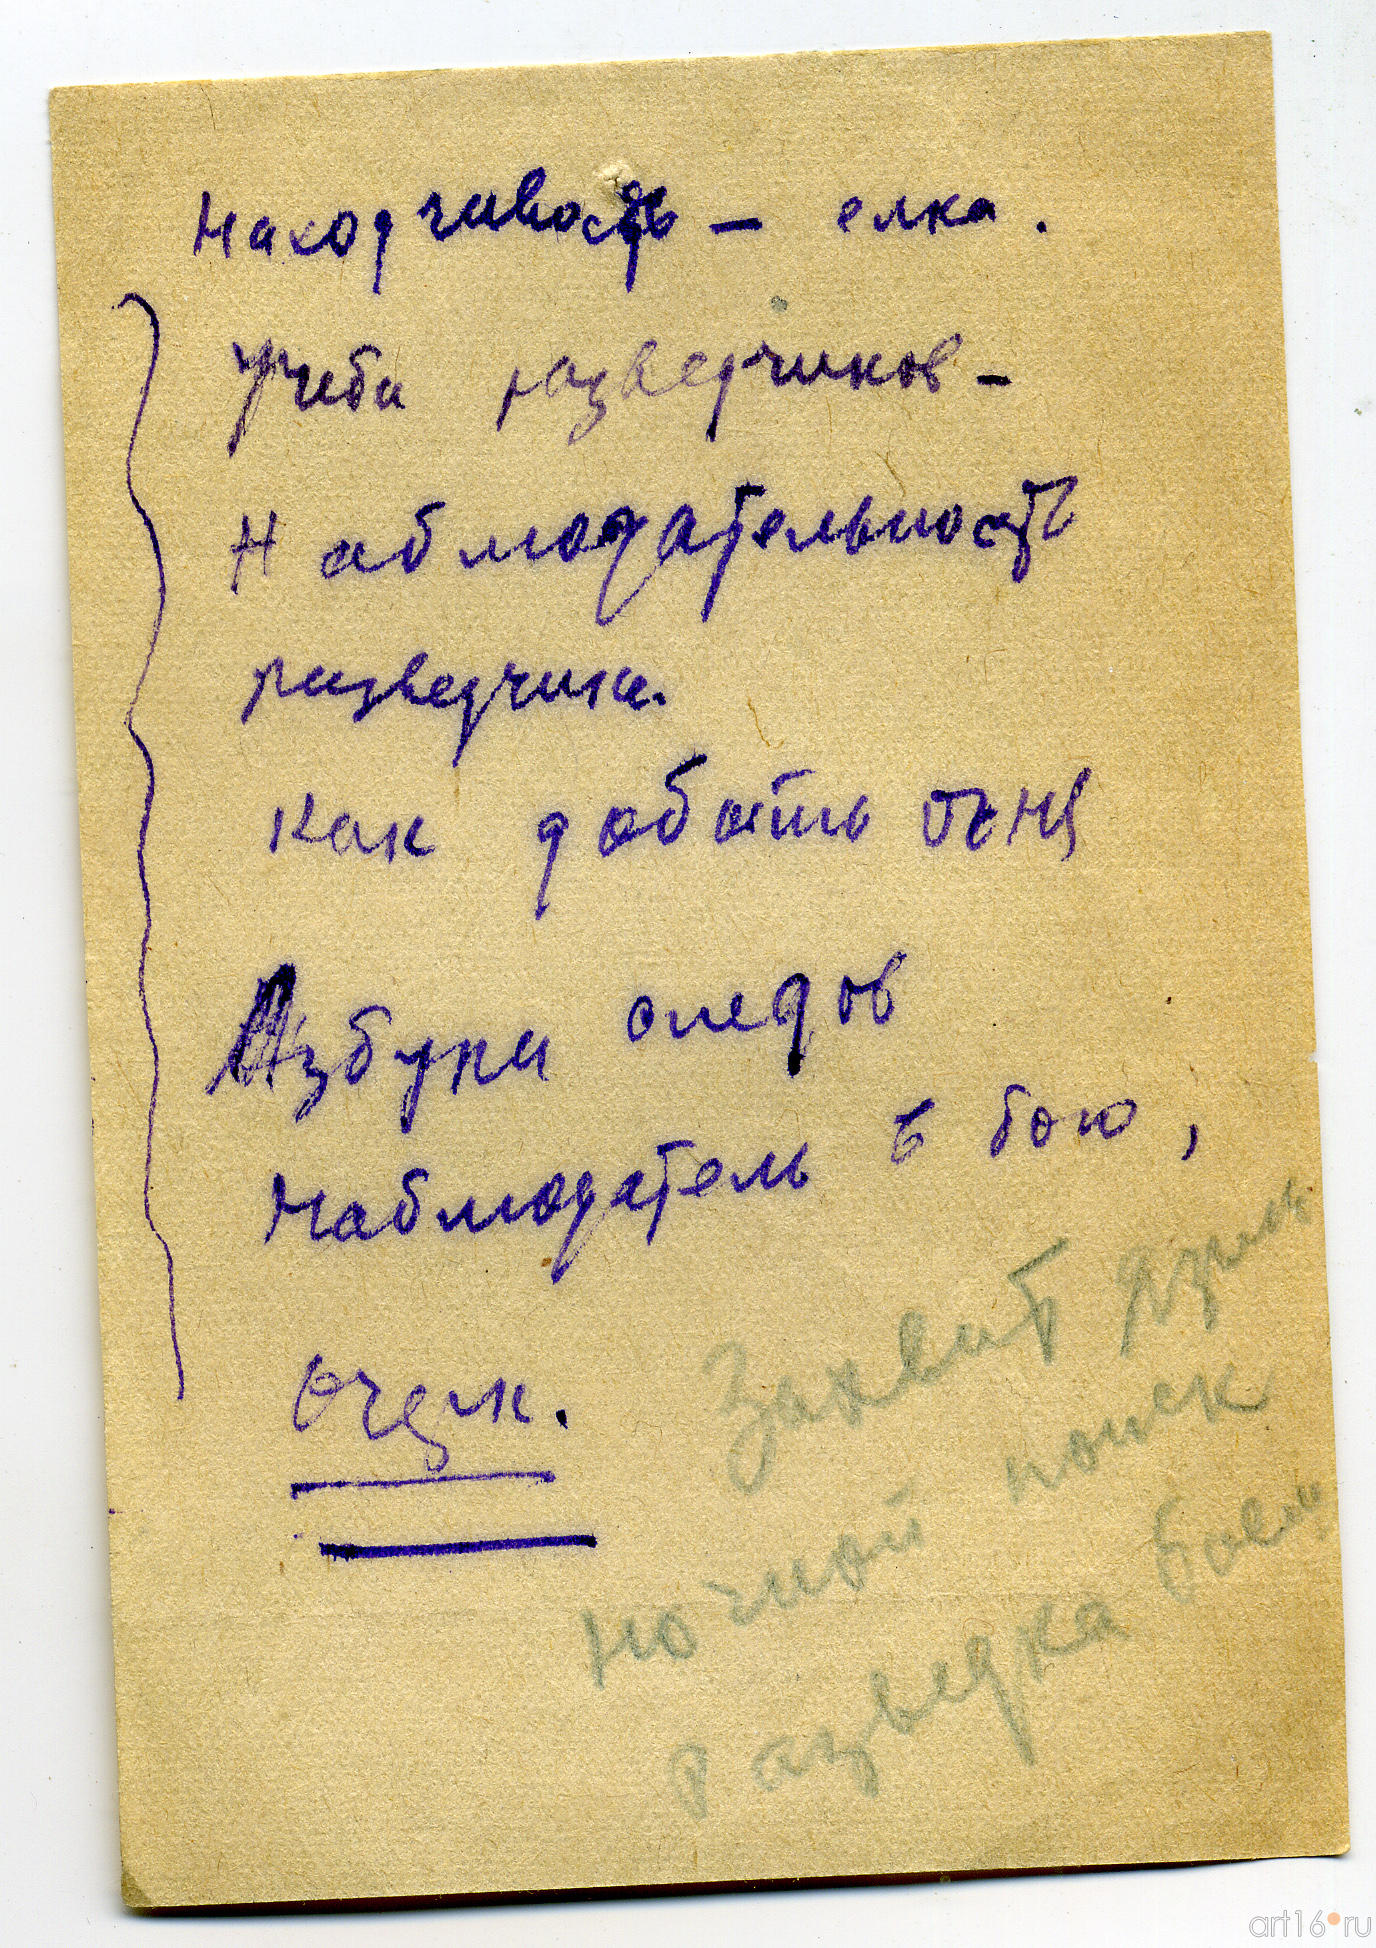 Находчивость – елка.
Учеба разведчиков –
Наблюдательность
разведчика.
Как добыть огня
Азбука следов
Наблюдатель в бою,
очерк.
Захват языка
ночной поиск
Разведка боем
art16.ru